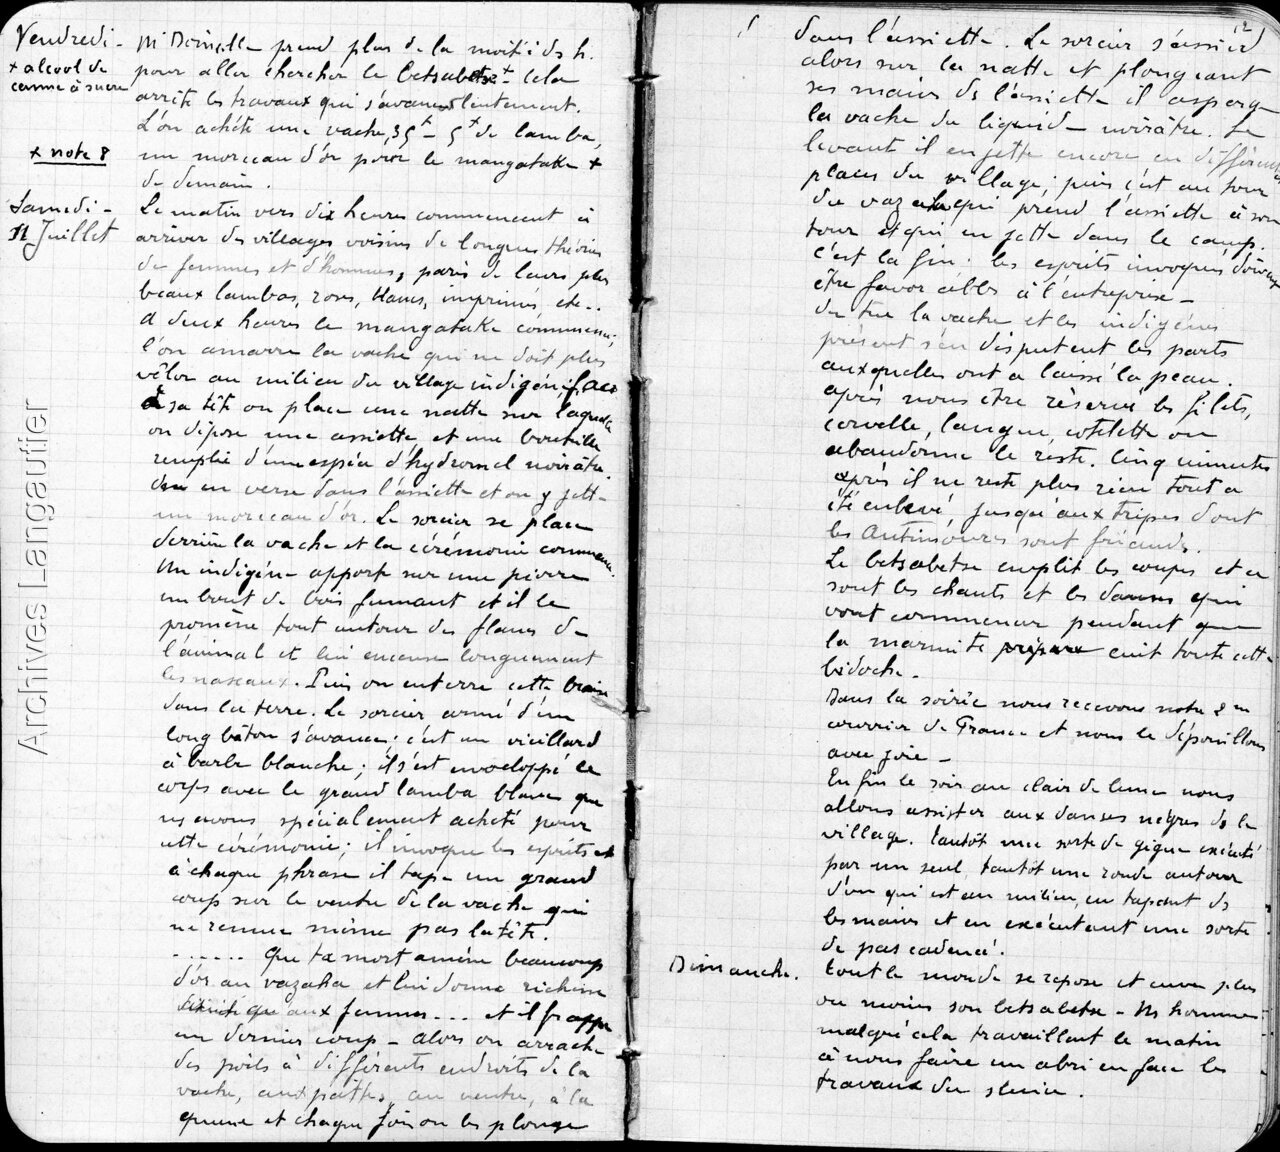 Vendredi -
x alcool de
canne à sucre
Mr Deinelle prend plus de la moitié ds h.
pour aller chercher le betsabetse x - cela
arrête les travaux qui s'avancent lentement.
L'on achète une vache, 35 f - 5 f de lamba,
x note 8
un morceau d'or pour le mangataka x
de demain.
Samedi -
11 Juillet
Le matin vers dix heures commencent à
arriver des villages voisins de longues théories
de femmes et d'hommes, parés de leurs plus
beaux lambas, roses, blancs, imprimés, etc..
A deux heures le mangataka commence,
l'on amarre la vache qui ne doit plus
vêler au milieu du village indigène, face
à sa tête on place une natte sur laquelle
on dépose une assiette et une bouteille
remplie d'une espèce d'hydromel noirâtre
on en verse dans l'assiette et on y jette
un morceau d'or. Le sorcier se place
derrière la vache et la cérémonie commence.
Un indigène apporte sur une pierre
un bout de bois fumant et il le
promène tout autour des flancs de
l'animal et lui encense longuement
les naseaux. Puis on enterre cette braise
dans la terre. Le sorcier armé d'un
long bâton s'avance; c'est un vieillard
à barbe blanche; il s'est enveloppé le
corps avec le grand lamba blanc que
ns avons spécialement acheté pour
cette cérémonie; il invoque les esprits et
à chaque phrase il tape un grand
coup sur le ventre de la vache qui
ne remue même pas la tête.
...... Que ta mort amène beaucoup
d'or au vazaha et lui donne richesse
ainsi qu'aux femmes... et il frappe
un dernier coup - alors on arrache
des poils à différents endroits de la
vache, aux pattes, au ventre, à la
queue et chaque fois on les plonge
12
dans l'assiette. Le sorcier s'assied
alors sur la natte et plongeant
ses mains ds l'assiette il asperge
la vache du liquide noirâtre. Se
levant il en jette encore en différentes
places du village; puis c'est au tour
du vazaha qui prend l'assiette à son
tour et qui en jette dans le camp.
C'est la fin: les esprits invoqués doivent
être favorables à l'entreprise -
On tue la vache et les indigènes
présent s'en disputent les parts
auxquelles ont a laissé la peau.
après nous être réservé les filets,
cervelle, langue, cotelette on
abandonne le reste. Cinq minutes
après il ne reste plus rien tout a
été enlevé jusqu'aux tripes dont
les Antimoures sont friands.
Le betsabetse emplit les coupes et ce
sont les chants et les danses qui
vont commencer pendant que
la marmite cuit toute cette
bidoche.
Dans la soirée nous recevons notre 2 em
courrier de France et nous le dépouillons
avec joie -
Enfin le soir au clair de lune nous
allons assister aux danses nègres ds le
village. Tantôt une sorte de gigue exécuté
par un seul, tantôt une ronde autour
d'un qui est au milieu, en tapant ds
les mains et en exécutant une sorte
de pas cadencé.
Dimanche.
tout le monde se repose et cuve plus
ou moins son betsabetse - Ns hommes
malgré cela travaillent le matin
à nous faire un abri en face les
travaux du sluice.
Archives Langautier